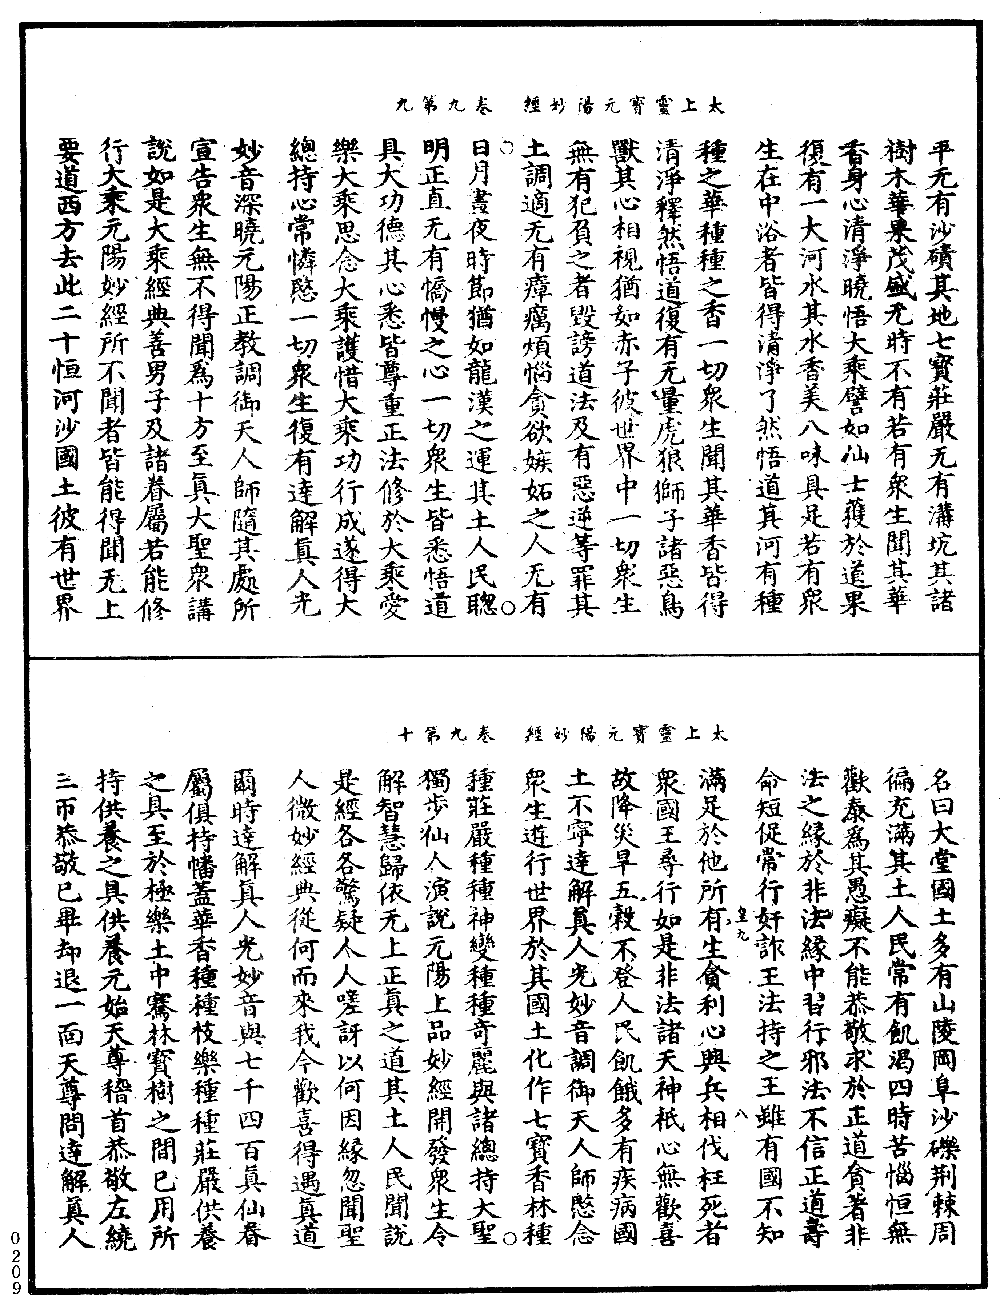 太上靈寶元陽妙經　卷九第九
平无有沙磧其地七寶莊嚴无有溝坑其諸
樹木華果茂盛无時不有若有衆生聞其華
香身心清淨曉悟大乘譬如仙士獲於道果
復有一大河水其水香美八味具足若有衆
生在中浴者皆得清淨了然悟道其河有種
種之華種種之香一切衆生聞其華香皆得
清淨釋然悟道復有无量虎狼獅子諸惡鳥
獸其心相視猶如赤子彼世界中一切衆生
無有犯負之者毀謗道法及有惡逆等罪其
土調適无有瘴癘煩惱貪欲嫉妬之人无有
日月晝夜時節猶如龍漢之運其土人民聰
明正直无有憍慢之心一切衆生皆悉悟道
具大功德其心悉皆尊重正法修於大乘愛
樂大乘思念大乘護惜大乘功行成遂得大
總持心常憐愍一切衆生復有達解眞人光
妙音深曉元陽正教調御天人師隨其處所
宣告衆生無不得聞爲十方至眞大聖衆講
說如是大乘經典善男子及諸眷屬若能修
行大乘元陽妙經所不聞者皆能得聞无上
要道西方去此二十恒河沙國土彼有世界
太上靈寶元陽妙經　卷九第十
名曰大堂國土多有山陵岡阜沙礫荆棘周
徧充滿其土人民常有飢渴四時苦惱恒無
歡泰爲其愚癡不能恭敬求於正道貪著非
法之緣於非法緣中習行邪法不信正道壽
命短促常行奸詐王法持之王雖有國不知
滿足於他所有生貪利心興兵相伐枉死者
皇九　八
衆國王尋行如是非法諸天神祇心無歡喜
故降災旱五穀不登人民飢餓多有疾病國
土不寧達解眞人光妙音調御天人師愍念
衆生遊行世界於其國土化作七寶香林種
種莊嚴種種神變種種奇麗與諸總持大聖
獨步仙人演說元陽上品妙經開發衆生令
解智慧歸依无上正眞之道其土人民聞說
是經各各驚疑人人嗟訝以何因緣忽聞聖
人微妙經典從何而來我今歡喜得遇眞道
爾時達解眞人光妙音與七千四百眞仙眷
屬俱持幡蓋華香種種妓樂種種莊嚴供養
之具至於極樂土中騫林寶樹之間已用所
持供養之具供養元始天尊稽首恭敬左繞
三帀恭敬已畢却退一面天尊問達解眞人
0209